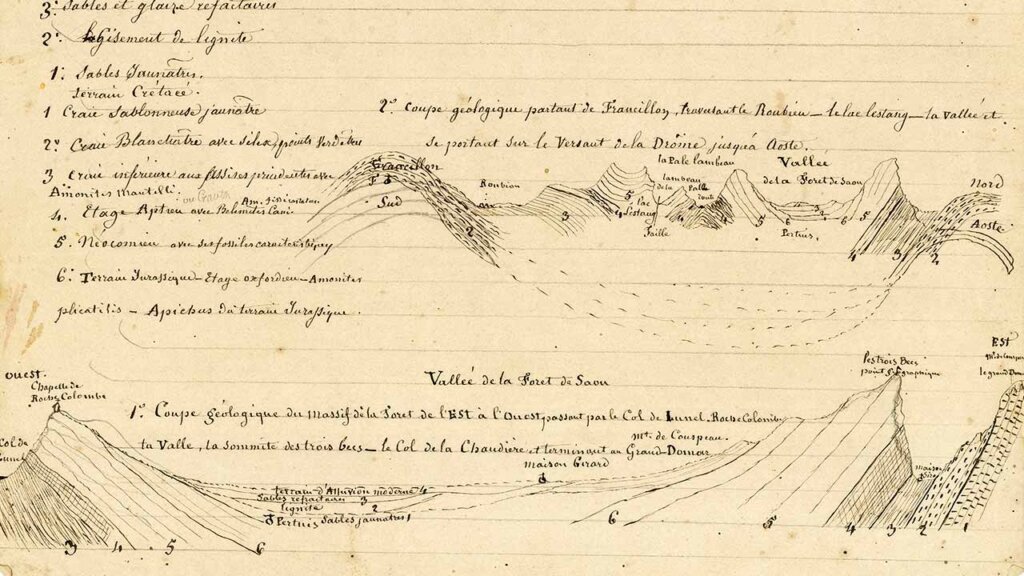 3º Sables et glaize refactaires
2º. Gisement de lignite
1º. Sables Jaunâtres.
Terrain Crétacé.
1 Craie Sablonneuse jaunâtre
2º Craie Blanchatre avec silex, points verdatres
3 Craie inférieure aux fossiles précédentes avec
Amonites Mantelli.
4. Etage Aptien avec Belemites
5. Néocomien avec ses fossiles caracteristiques
6º Terrain Jurassique - Etage oxfordien - Amonites
plicatilis - Apichus du terrain Jurassique.
2º Coupe géologique partant de Francillon, traversant le Roubion - le lac lestang - la Vallée et
se portant sur le Versant de la Drôme jusqu'à Aoste.
Francillon
Sud
Roubion
2
3
la Pale lambeau
lambeau de la Palle
5 lac Lestang
4
Faille
Vallée
de la Foret de Saou
5
6
3
Pertuis.
6
5
4 3 2
Nord
Aoste
Vallée de la Foret de Saou
1º Coupe géologique du massif de la Foret de l'Est à l'Ouest, passant par le Col de Lunel. Roche Colombe
la Valle, la Sommité des trois becs - le Col de la Chaudière, et terminant au Grand Domar
ouest.
Chapelle de
Roche Colombe
Col de
Lunel
mt. de Couspeau.
maison Girard
terrain d'Alluvion moderne 4
Sables refractaires 3
lignite 2
Pertuis Sables jaunatres 1
3 4 5 6
6
5
4 3 2 1
les trois Becs
Est
le grand Domar
maison